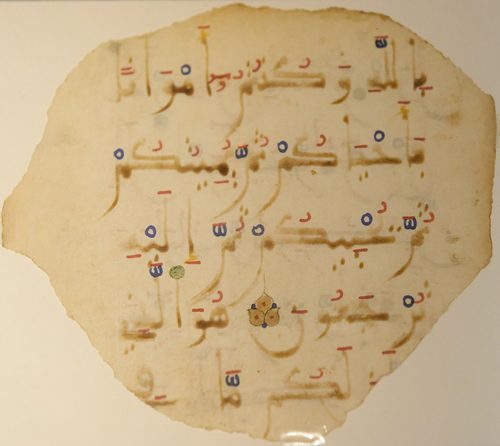 بِاللَّهِ وَكُنتُمْ أَمْوَاتًا
فَأَحْيَاكُمْ ثُمَّ يُمِيتُكُمْ
ثُمَّ يُحْيِيكُمْ ثُمَّ إِلَيْهِ
تُرْجَعُونَ هُوَ الَّذِي
لَكُم مَّا فِي